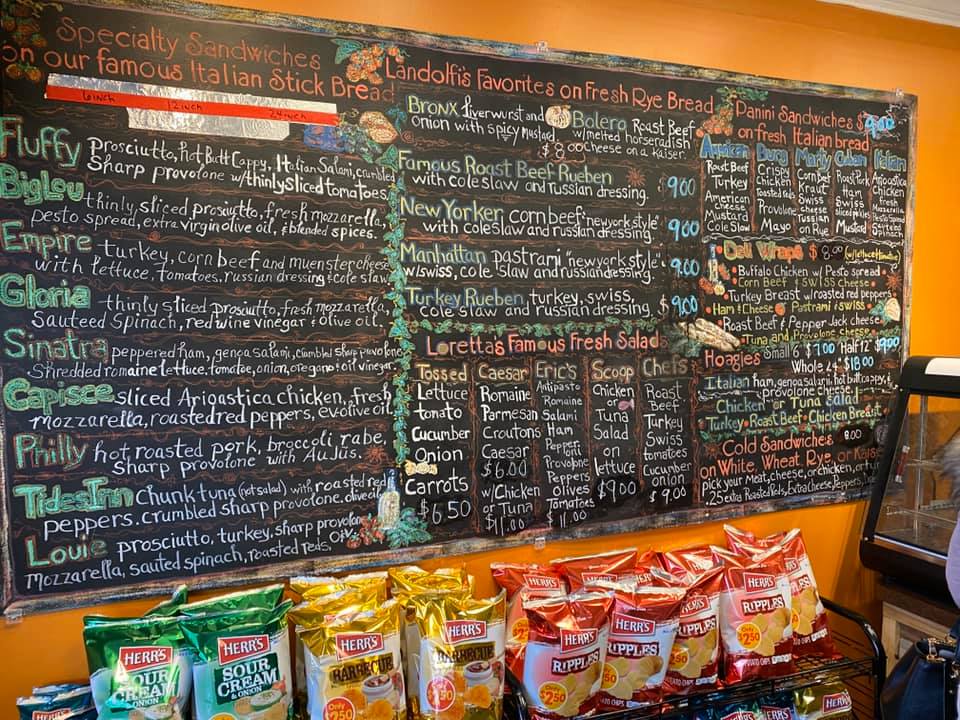 Specialty Sandwiches
on our famous Italian Stick Bread
6 inch 12 inch 24 inch
Fluffy Prosciutto, Hot Butt Cappy, Italian Salami, crumbled
Sharp provolone w/thinly sliced tomatoes
BigLou thinly sliced prosciutto, fresh mozzarella,
pesto spread, extra virgin olive oil, & blended spices.
Empire turkey, corn beef and muenster cheese
with lettuce, tomatoes, russian dressing & cole slaw
Gloria thinly sliced prosciutto, fresh mozzarella,
Sauteed Spinach, red wine vinegar & olive oil.
Sinatra peppered ham, genoa salami, crumbled sharp provolone
Shredded romaine lettuce, tomatoe, onion, oregano & oil vinegar
Capisce sliced Arigastica chicken, fresh
mozzarella, roasted red peppers, ev. olive oil.
Philly hot, roasted pork, broccoli rabe,
Sharp provolone with Au Jus.
Tides Inn Chunk tuna (not salad) with roasted red
peppers. crumbled sharp provolone. olive oil
Louie prosciutto, turkey, sharp provolone
mozzarella, sauted spinach, roasted reds,
Landolfi's Favorites on Fresh Rye Bread
Bronx liverwurst and
onion with spicy mustard
Bolero Roast Beef
w/melted horseradish
cheese on a Kaiser.
$8.00
Famous Roast Beef Rueben
with cole slaw and russian dressing.
9.00
New Yorker corn beef "new york style"
with coleslaw and russian dressing.
9.00
Manhattan pastrami "new york style"
w/swiss, cole slaw and russian dressing.
9.00
Turkey Rueben, turkey, swiss,
cole slaw and russian dressing.
$9.00
Loretta's Famous Fresh Salads
Tossed
Lettuce
tomato
Cucumber
Onion
Carrots
$6.50
Caesar
Romaine
Parmesan
Croutons
Caesar
$6.00
w/Chicken
or Tuna
$11.00
Eric's
Antipasto
Romaine
Salami
Ham
Pepperoni
Provolone
Peppers
Olives
Tomatoes
$11.00
Scoop
Chicken
or
Tuna
Salad
on
lettuce
$9.00
Chefs
Roast
Beef
Turkey
Swiss
tomatoes
Cucumber
onion
$9.00
Panini Sandwiches $9.00
on fresh Italian bread
American
Roast Beef
Turkey
American
Cheese
Mustard
Cole Slaw
Burg
Crispy
Chicken
Toasted Reds
Provolone
Mayo
Marty
Corn Beef
Kraut
Swiss
cheese
Russian
on Rye
Cuban
Roast Pork
Ham
Swiss
sliced pickles
Mustard
Italian
Arigastica
Chicken
fresh
Mozzarella
Spinach
Deli Wraps $8.00 (w/lettuce & tomatoe)
Buffalo Chicken w/ Pesto spread
Corn Beef & Swiss Cheese
Turkey Breast w/roasted red peppers
Ham & Cheese Pastrami & Swiss
Roast Beef & Pepper Jack cheese
Tuna and Provolone Cheese
Hoagies Small 6" $7.00 Half 12" $9.00
Whole 24" $18.00
Italian ham, genoa salami, hot butt cappy, &
provolone cheese
Chicken or Tuna salad
Turkey Roast Beef Chicken Breast
Cold Sandwiches 8.00
on White, Wheat, Rye, or Kaiser
pick your Meat, cheese, or chicken, or tuna
.25 extra Roasted Reds, Extra Cheese, Peppers,
HERR'S
SOUR
CREAM
& ONION
HERR'S
SOUR
CREAM
& ONION
HERR'S
BARBECUE
Only
$2.50
HERR'S
BARBECUE
$2.50
HERR'S
HERR'S
RIPPLES
Only
$2.50
HERR'S
RIPPLES
HERR'S
RIPPLES
HERR'S
RIPPLES
Only
$2.50
POTATO CHIPS